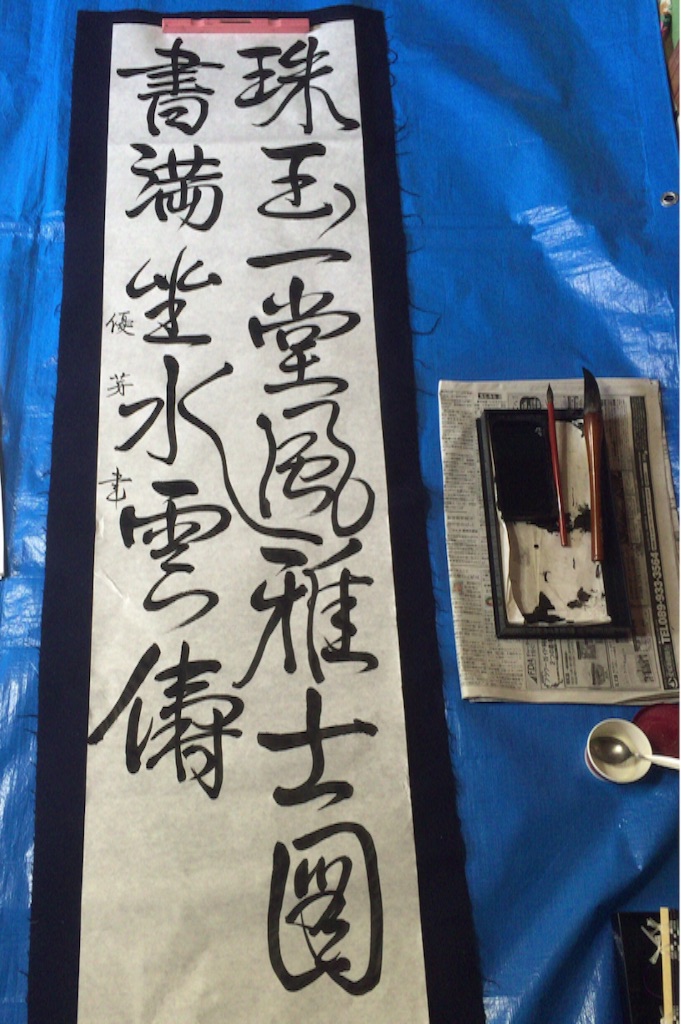 珠玉一堂風雅士圖
書満坐水雲儔
優芽書
TEL089-933-3564